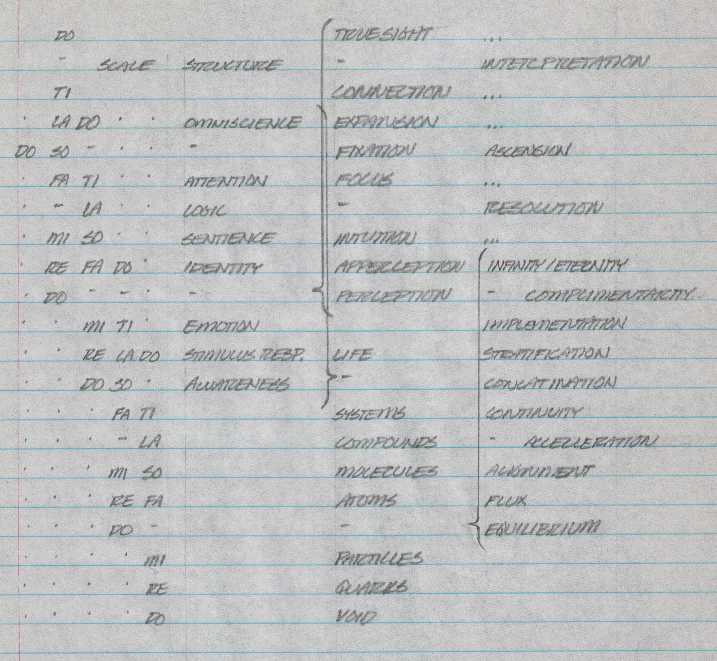 DO TRUESIGHT ...
" SCALE STRUCTURE " INTERCPRETATION
TI CONNECTION ...
· LA DO · · OMNISCIENCE EXPANSION ...
DO SO " · · " FIXATION ASCENSION
· FA TI · · ATTENTION FOCUS ...
· " LA · · LOGIC " RESOLUTION
· MI SO · · SENTIENCE INTUITION ...
· RE FA DO · IDENTITY APPERCEPTION INFINITY/ETERNITY
· DO " " · " PERCEPTION " COMPLIMENTARITY
· · MI TI · EMOTION IMPLEMENTATION
· · RE LA DO STIMULUS RESP. LIFE STRATIFICATION
· · DO SO · AWARENESS " CONCATINATION
· · · FA TI SYSTEMS CONTINUITY
· · · " LA COMPOUNDS " ACCELLERATION
· · · MI SO MOLECULES ALIGNMENT
· · · RE FA ATOMS FLUX
· · · DO " " EQUILIBRIUM
· · · · MI PARTICLES
· · · · RE QUARKS
· · · · DO VOID